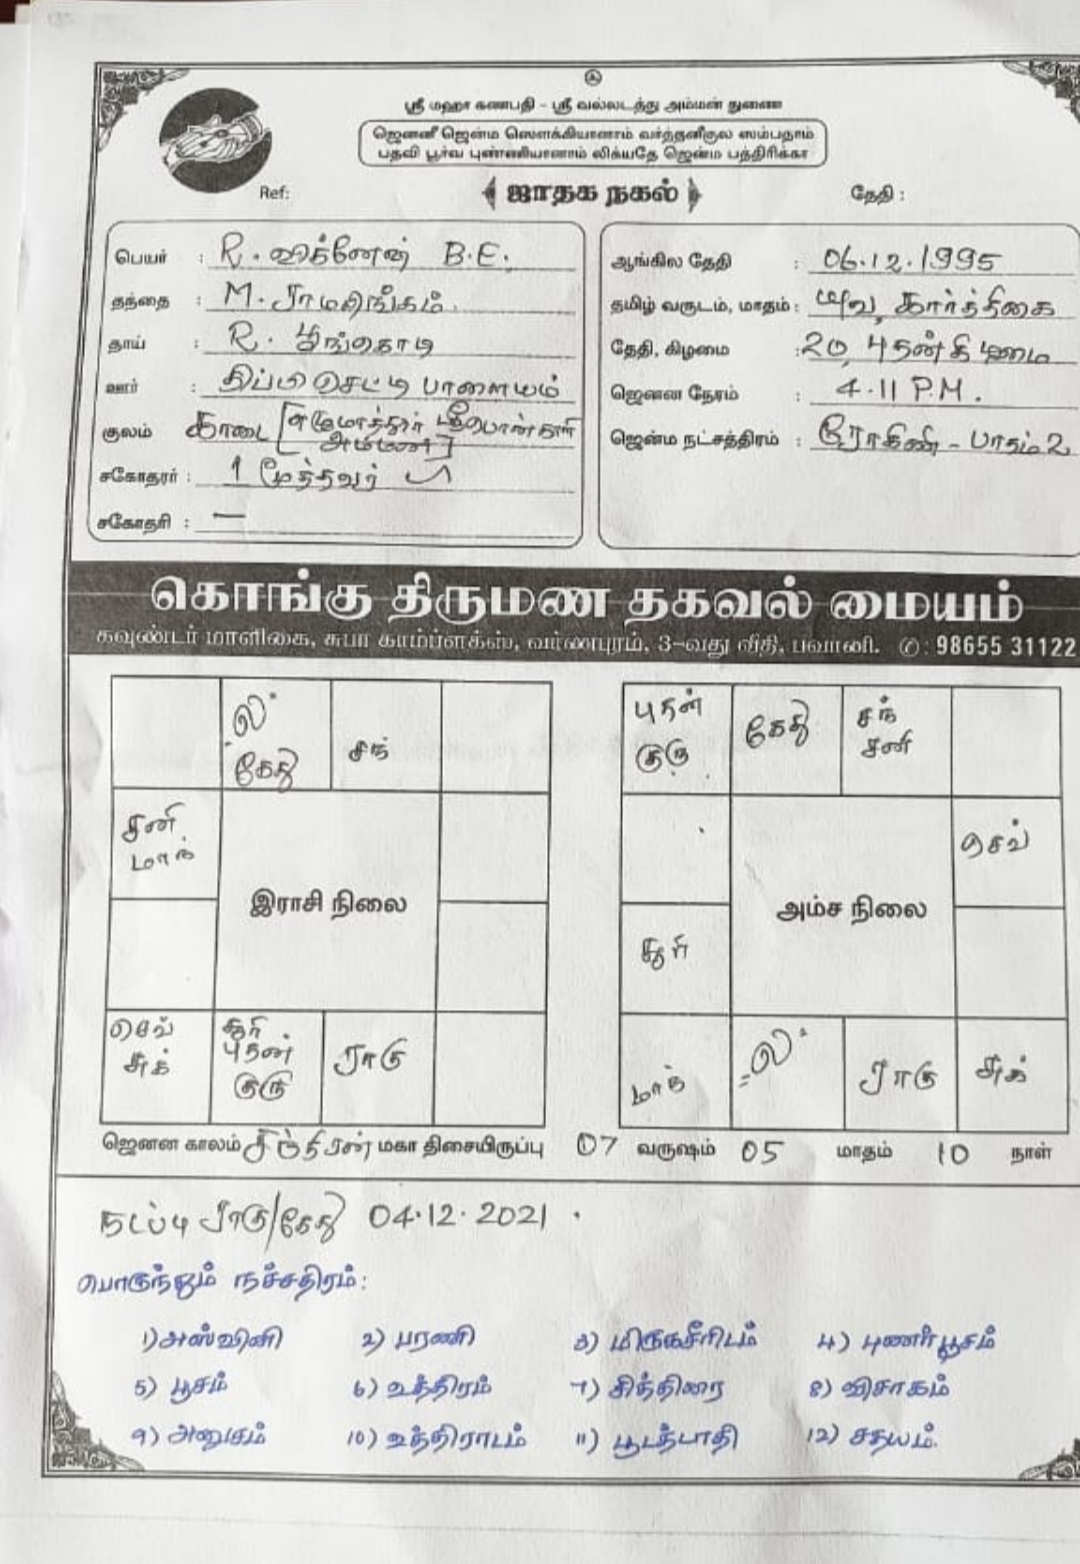 ஸ்ரீ மஹா கணபதி - ஸ்ரீ வல்லடத்து அம்மன் துணை
ஜெனனீ ஜென்ம ஸௌக்கியானாம் வர்த்தனீகுல ஸம்பதாம்
பதவி பூர்வ புண்ணியானாம் லிக்யதே ஜென்ம பத்திரிக்கா
Ref:
ஜாதக நகல்
தேதி :
பெயர் : R. விக்னேஷ் B.E.
தந்தை : M. ராமலிங்கம்.
தாய் : R. பூங்கொடி
ஊர் : திப்பிசெட்டி பாளையம்
குலம் காடை [எழுமாத்தூர் பொன்காளி
அம்மன்]
சகோதரர் : 1 மூத்தவர்
சகோதரி : —
ஆங்கில தேதி : 06.12.1995
தமிழ் வருடம், மாதம் : யுவ, கார்த்திகை
தேதி, கிழமை : 20, புதன்கிழமை
ஜெனன நேரம் : 4.11 P.M.
ஜென்ம நட்சத்திரம் : ரோகிணி - பாதம் 2
கொங்கு திருமண தகவல் மையம்
கவுண்டர் மாளிகை, சுபா காம்ப்ளக்ஸ், வர்ணபுரம், 3-வது வீதி, பவானி. ✆ : 98655 31122
ல
கேது
சந்
சனி
மாந்
இராசி நிலை
செவ்
சுக்
சூரி
புதன்
குரு
ராகு
புதன்
குரு
கேது
சந்
சனி
செவ்
அம்ச நிலை
சூரி
மாந்
ல
ராகு
சுக்
ஜெனன காலம் சந்திரன் மகா திசையிருப்பு 07 வருஷம் 05 மாதம் 10 நாள்
நடப்பு ராகு/கேது 04.12.2021.
பொருந்தும் நச்சதிரம் :
1) அஸ்வினி 2) பரணி 3) மிருகசீரிடம் 4) புணர்பூசம்
5) பூசம் 6) உத்திரம் 7) சித்திரை 8) விசாகம்
9) அனுசம் 10) உத்திராடம் 11) பூரட்டாதி 12) சதயம்.